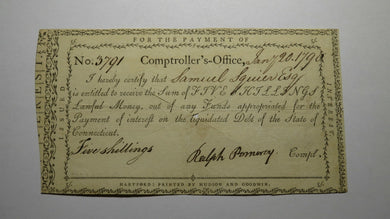 FOR THE PAYMENT OF
No. 5791 Comptroller's-Office, Jany 20. 1790
I hereby certify that Samuel Squier Esqr
is entitled to receive the Sum of FIVE SHILLINGS
Lawful Money, out of any Funds appropriated for the
Payment of interest on the liquidated Debt of the State of
Connecticut.
Five shillings Ralph Pomeroy Compt.
HARTFORD: PRINTED BY HUDSON AND GOODWIN.